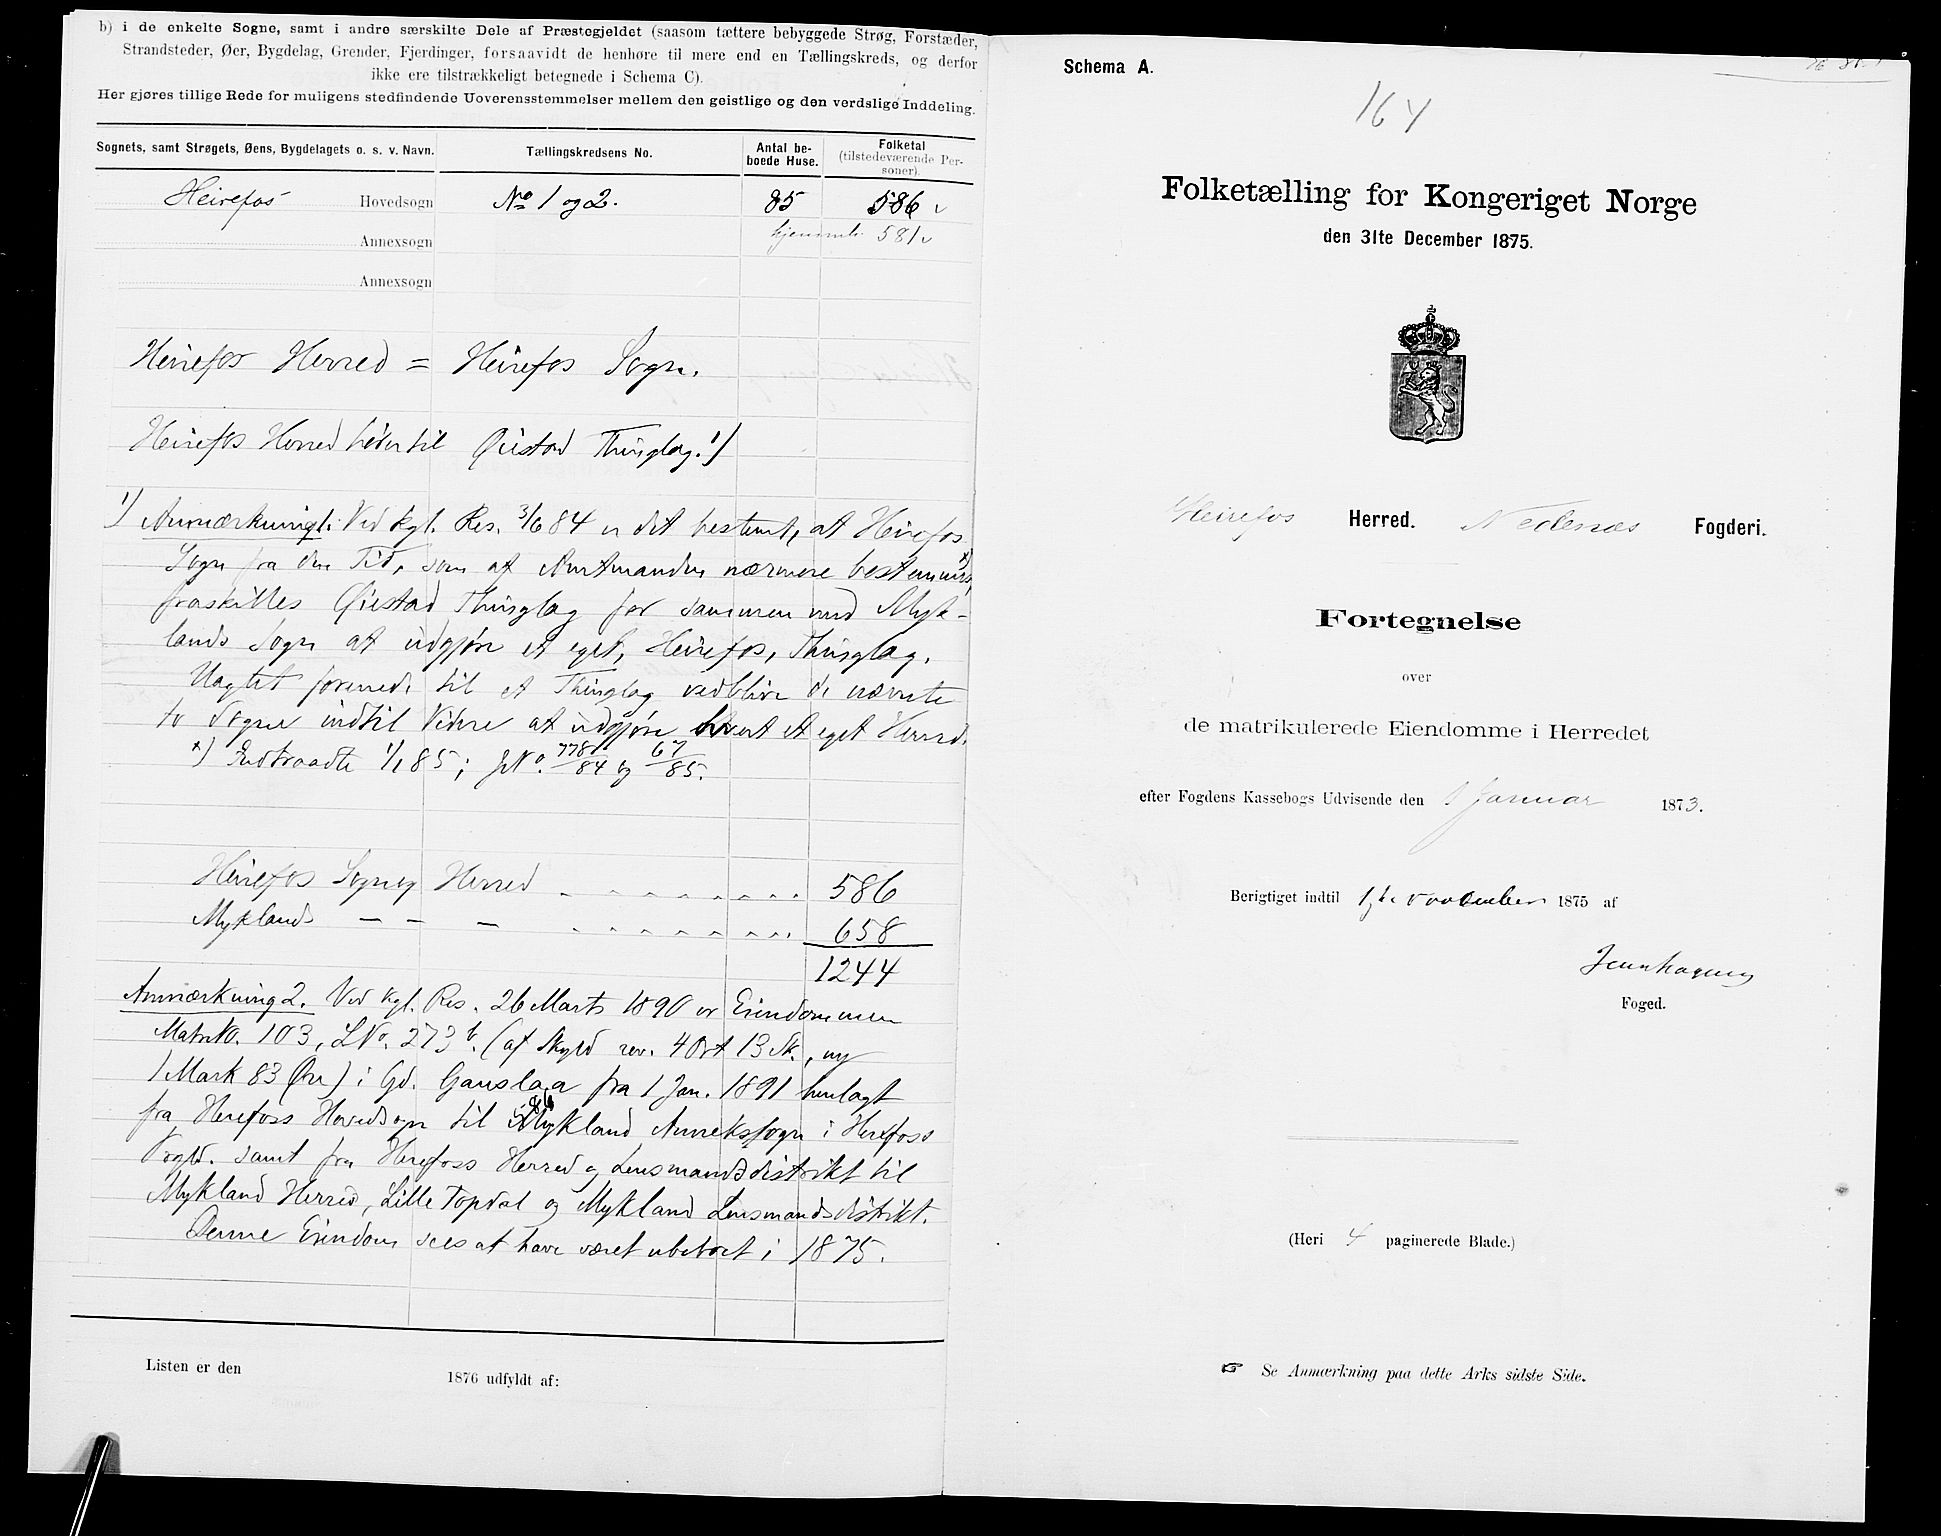 b) i de enkelte Sogne, samt i andre særskilte Dele af Præstegjeldet (saasom tættere bebyggede Strøg, Forstæder,
Strandsteder, Øer, Bygdelag, Grender, Fjerdinger, forsaavidt de henhøre til mere end en Tællingskreds, og derfor
ikke ere tilstrækkeligt betegnede i Schema C).
Her gjøres tillige Rede for muligens stedfindende Uoverensstemmelser mellem den geistlige og den verdslige Inddeling.
Sognets, samt Strøgets, Øens, Bygdelagets o. s. v. Navn. Tællingskredsens No. Antal be-boede Huse. Folketal (tilstedeværende Per-soner).
Heirefos Hovedsogn No 1 og 2. 85 586
Annexsogn hjemmeh. 581
Annexsogn
Heirefos Herred = Heirefos Sogn.
Heirefos Herred hører til Øiestad Thinglag. 1)
1) Anmærkning 1. Ved kgl. Res. 3/6 84 er det bestemt, at Heirefos
Sogn fra den Tid, som af Amtmanden nærmere bestemmes, *)
fraskilles Øiestad Thinglag for sammen med Myk-
lands Sogn at udgjøre et eget, Heirefos, Thinglag.
Uagtet forened. til et Thinglag vedblive de nævnte
to Sogne indtil Videre at udgjøre hvert et eget Herred.
*) Indtraadte 1/1 85; JNo. 778/84 og 67/85.
Heirefos Sogn og Herred 586
Myklands — — — 658
1244
Anmærkning 2. Ved kgl. Res. 26 Marts 1890 er Eiendommen
MatrNo. 103, LNo. 273 b. (af Skyld rev. 4 Ort 13 Sk., ny
1 Mark 83 Øre) i Gd. Gauslaa fra 1 Jan. 1891 henlagt
fra Herefoss Hovedsogn til Mykland Annekssogn i Herefoss
Prgld. samt fra Herefoss Herred og Lensmandsdistrikt til
Mykland Herred, Lille Topdal og Mykland Lensmandsdistrikt.
Denne Eiendom sees at have været ubeboet i 1875.
Listen er den 1876 udfyldt af:
Schema A.
164
Folketælling for Kongeriget Norge
den 31te December 1875.
Heirefos Herred. Nedenæs Fogderi.
Fortegnelse
over
de matrikulerede Eiendomme i Herredet
efter Fogdens Kassebogs Udvisende den 1 Januar 1873.
Berigtiget indtil 1ste November 1875 af
Foged.
(Heri 4 paginerede Blade.)
☞ Se Anmærkning paa dette Arks sidste Side.